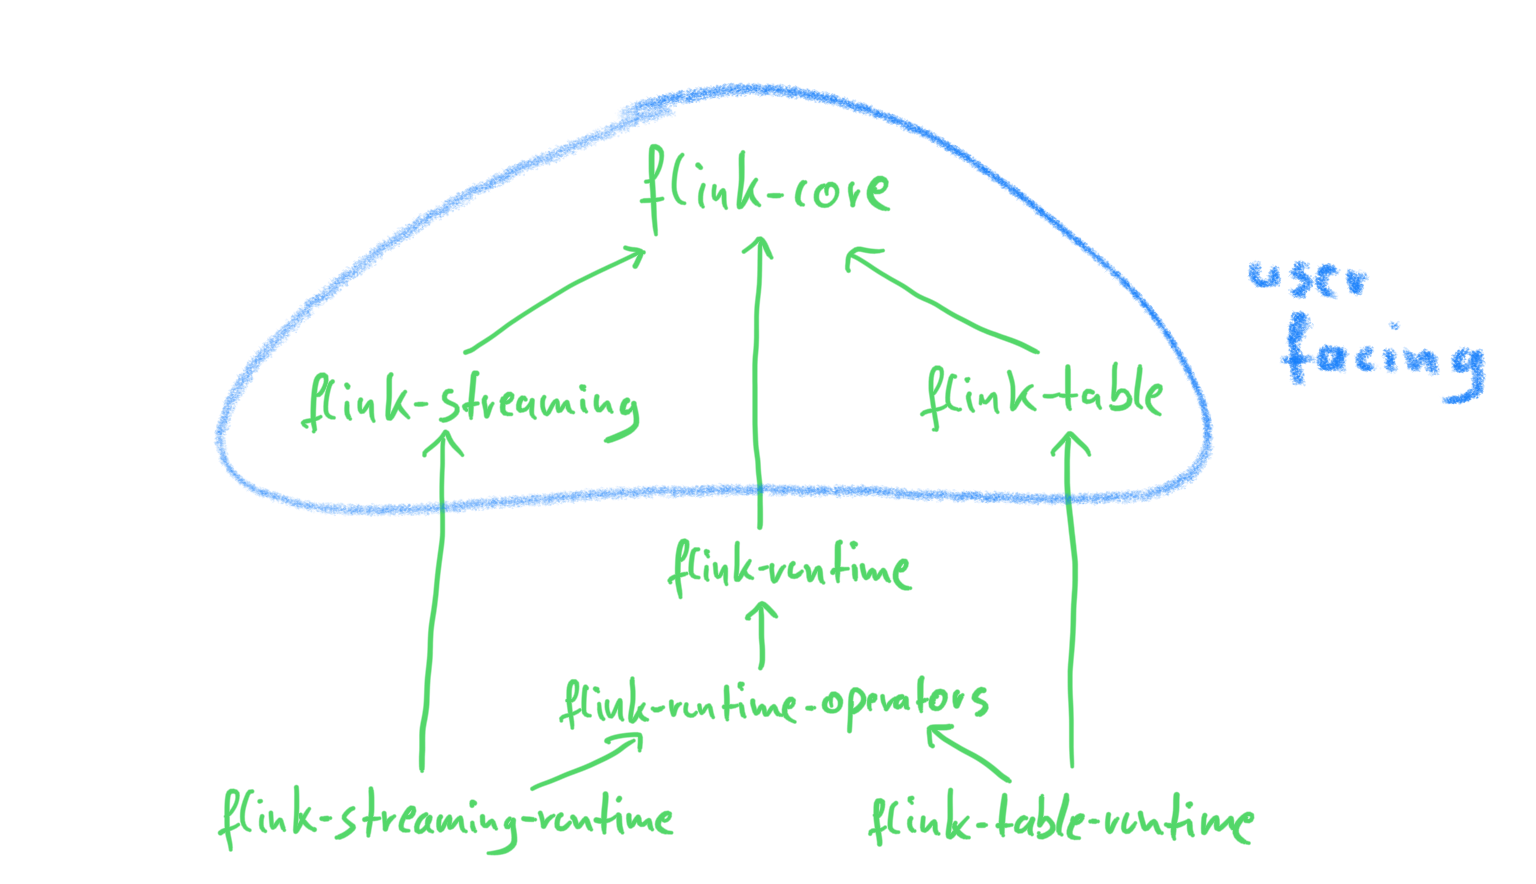 flink-core
user
facing
flink-streaming
flink-table
flink-runtime
flink-runtime-operators
flink-streaming-runtime
flink-table-runtime